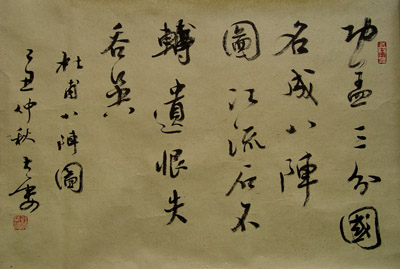 功盖三分國
名成八陣
圖江流石不
轉遺恨失
吞吴
杜甫八陣圖
丑仲秋